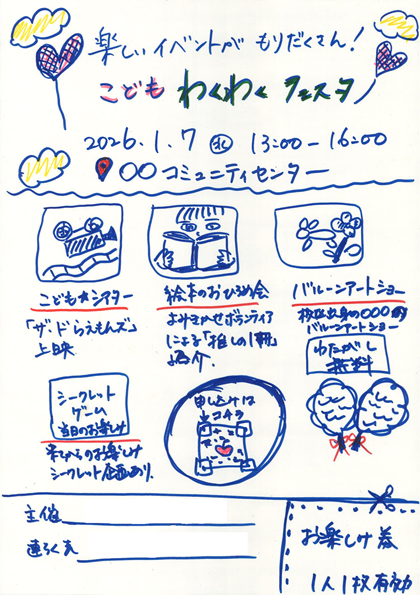 楽しいイベントがもりだくさん!
こども わくわく フェスタ
2026.1.7 ㊌ 13:00-16:00
〇〇コミュニティセンター
こども★シアター
「ザ・ドらえもんズ」
上映
絵本のおひろめ会
よみきかせボランティア
による「推しの1冊」
紹介.
バルーンアートショー
校区出身の〇〇〇の
バルーンアートショー
わたがし
無料
シークレット
ゲーム
当日のお楽しみ
来てからのお楽しみ
シークレット企画あり.
申し込みは
コチラ
主催
連らく先
お楽しみ券
1人1枚有効